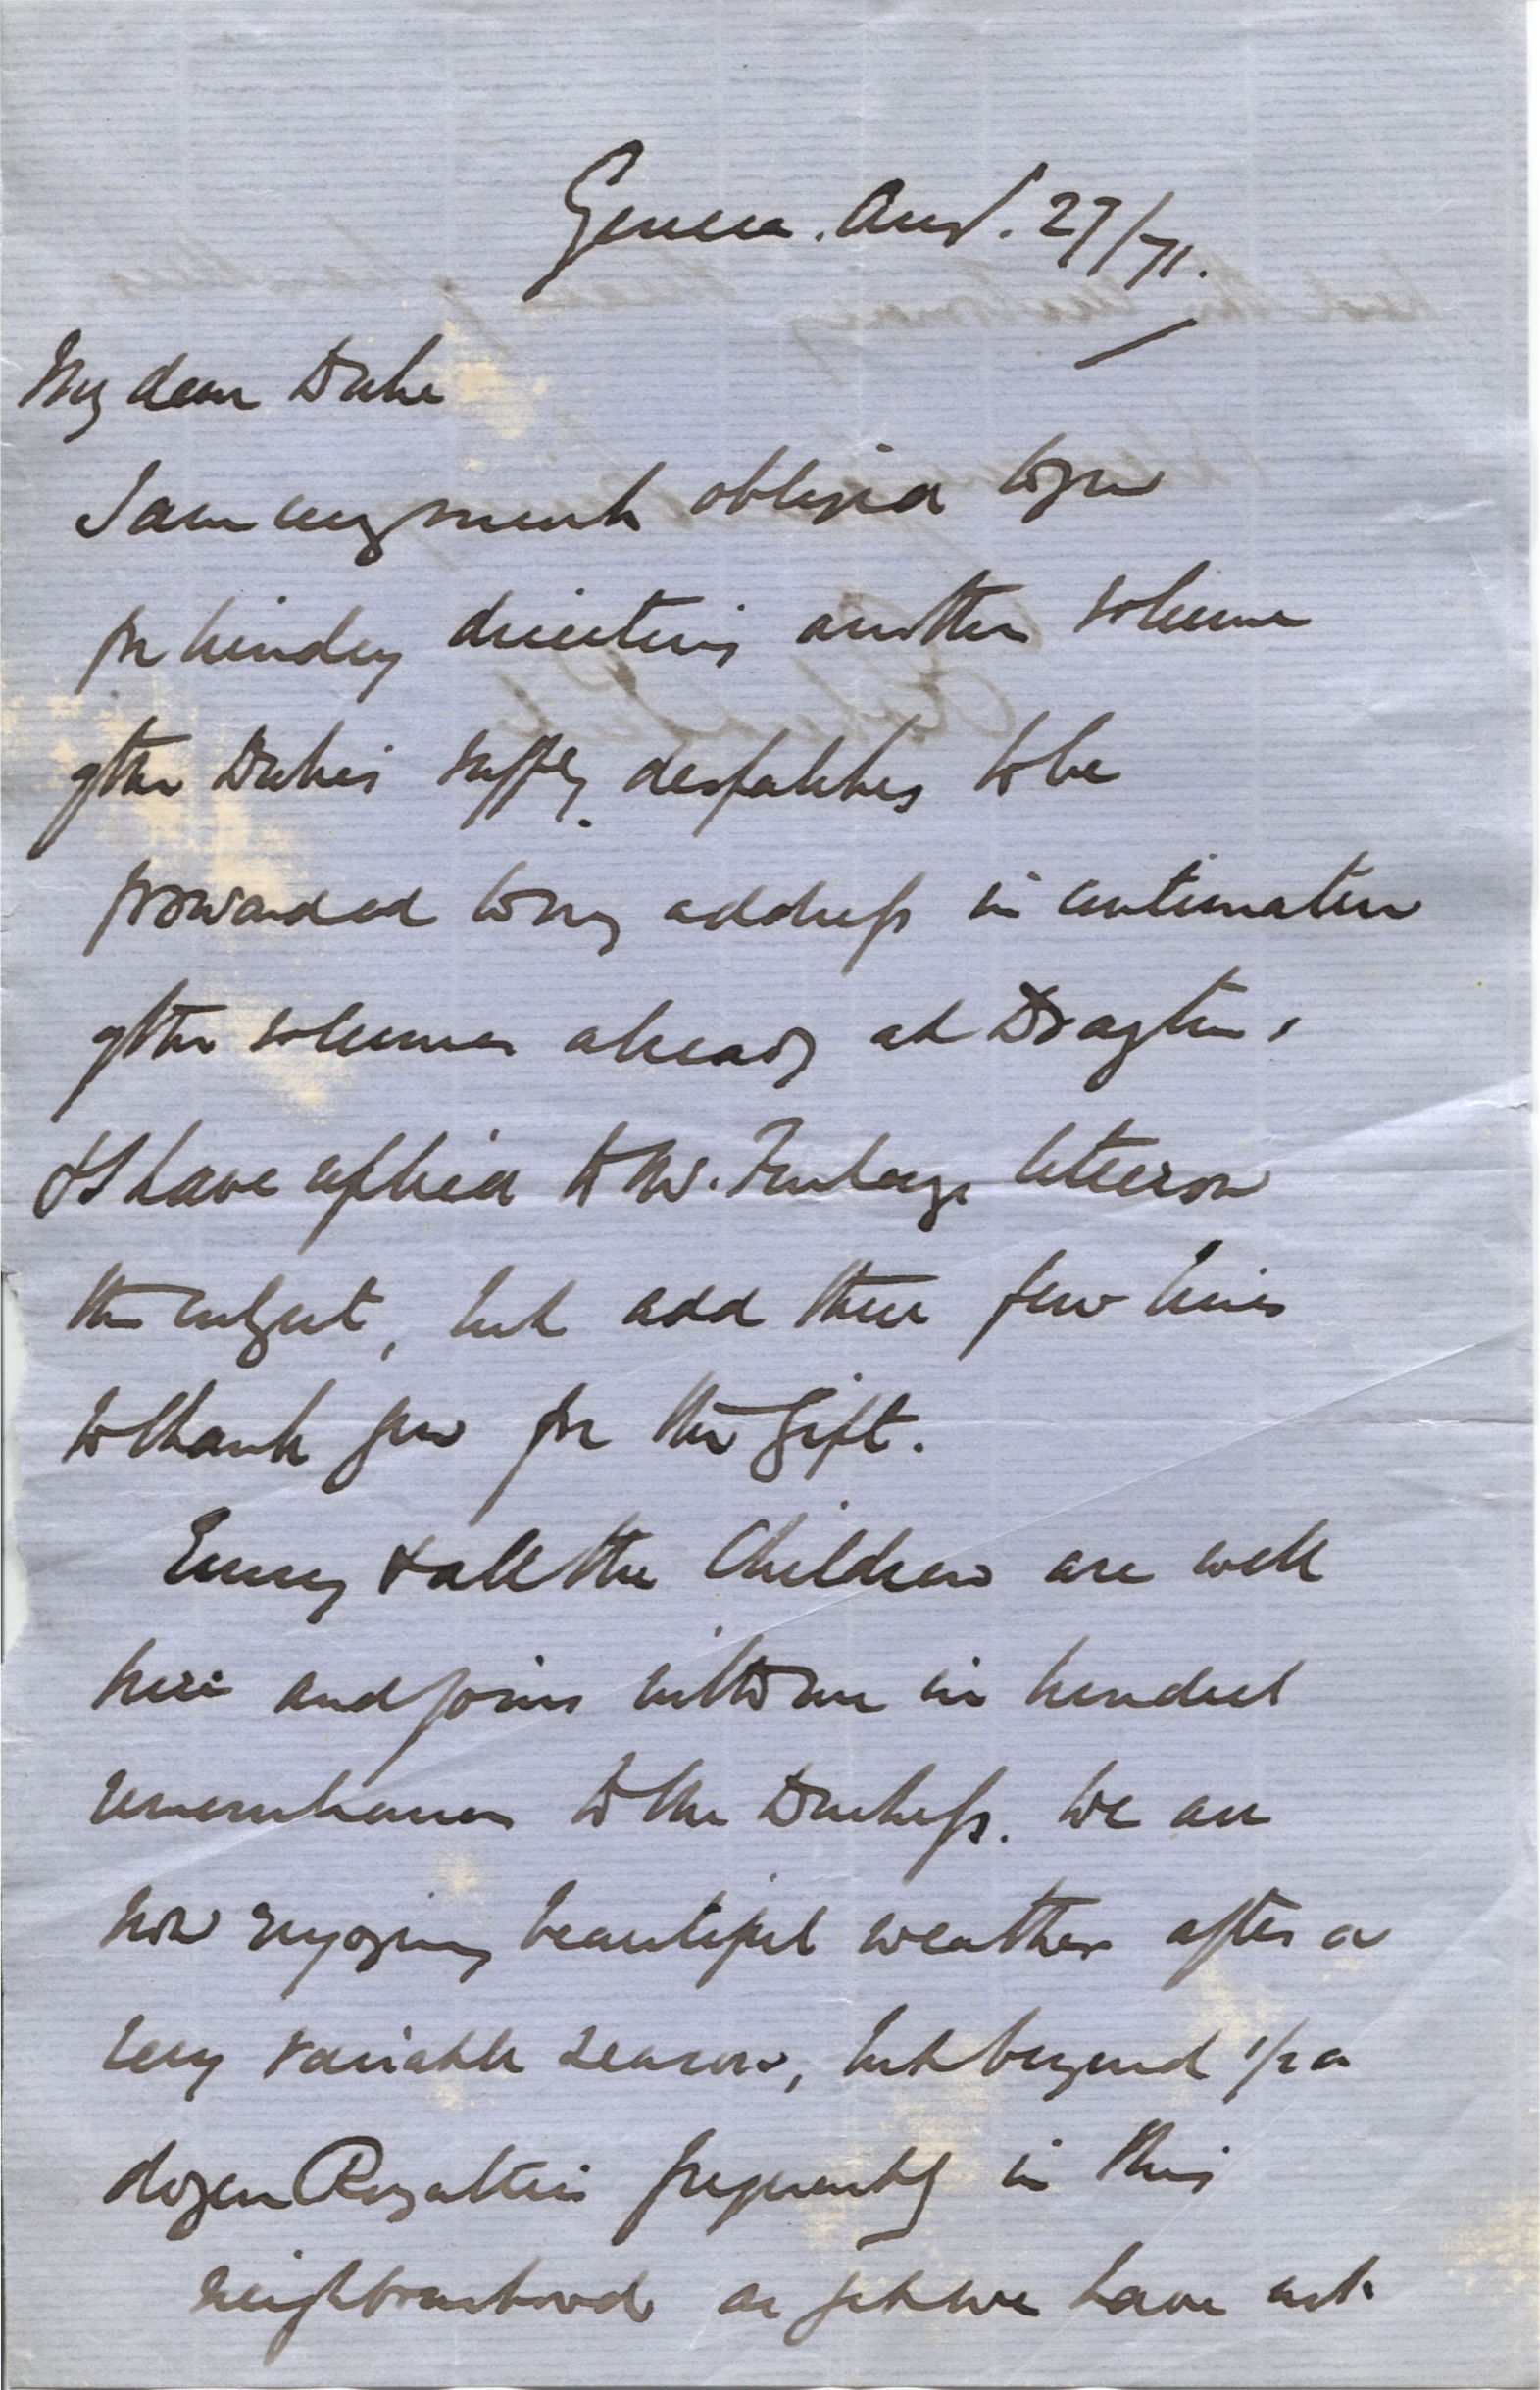 Geneva. Aug. 27/71.
My dear Duke
I am very much obliged to you
for kindly directing another volume
of the Duke's suppy. despatches to be
forwarded to my address in continuation
of the volumes already at Drayton,
& I have replied to Mr. letter on
the subject, but add these few lines
to thank you for the Gift.
Emily & all the Children are well
here and join with me in kindest
remembrances to the Duchess. We are
now enjoying beautiful weather after a
very variable season, but beyond 1/2 a
dozen Royalties frequently in this
neighbourhood as yet we have not